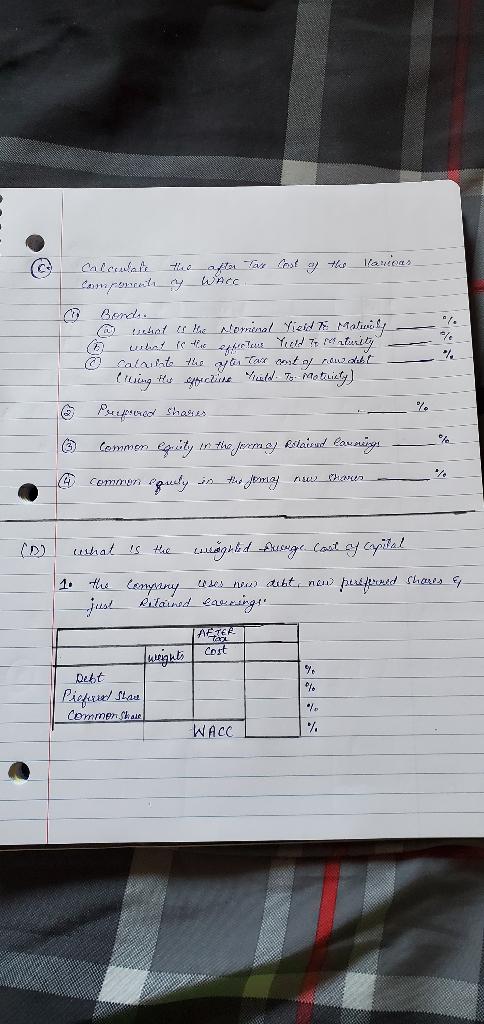 (C) Calculate the after Tax Cost of the Various
Components of WACC.
(1) Bonds.
(a) what is the Nominal Yield To Maturity ____ %
(b) what is the effective Yield To Maturity ____ %
(c) Calculate the after Tax cost of new debt ____ %
(Using the effective Yield-To-Maturity)
(2) Preferred Shares ____ %
(3) Common Equity in the form of Retained earnings ____ %
(4) Common equity in the form of new shares ____ %
(D) what is the weighted Average Cost of Capital
1. the Company uses new debt, new preferred shares &
just Retained earnings.
AFTER
Tax
weights Cost
Debt %
Preferred Share %
Common Share %
WACC %